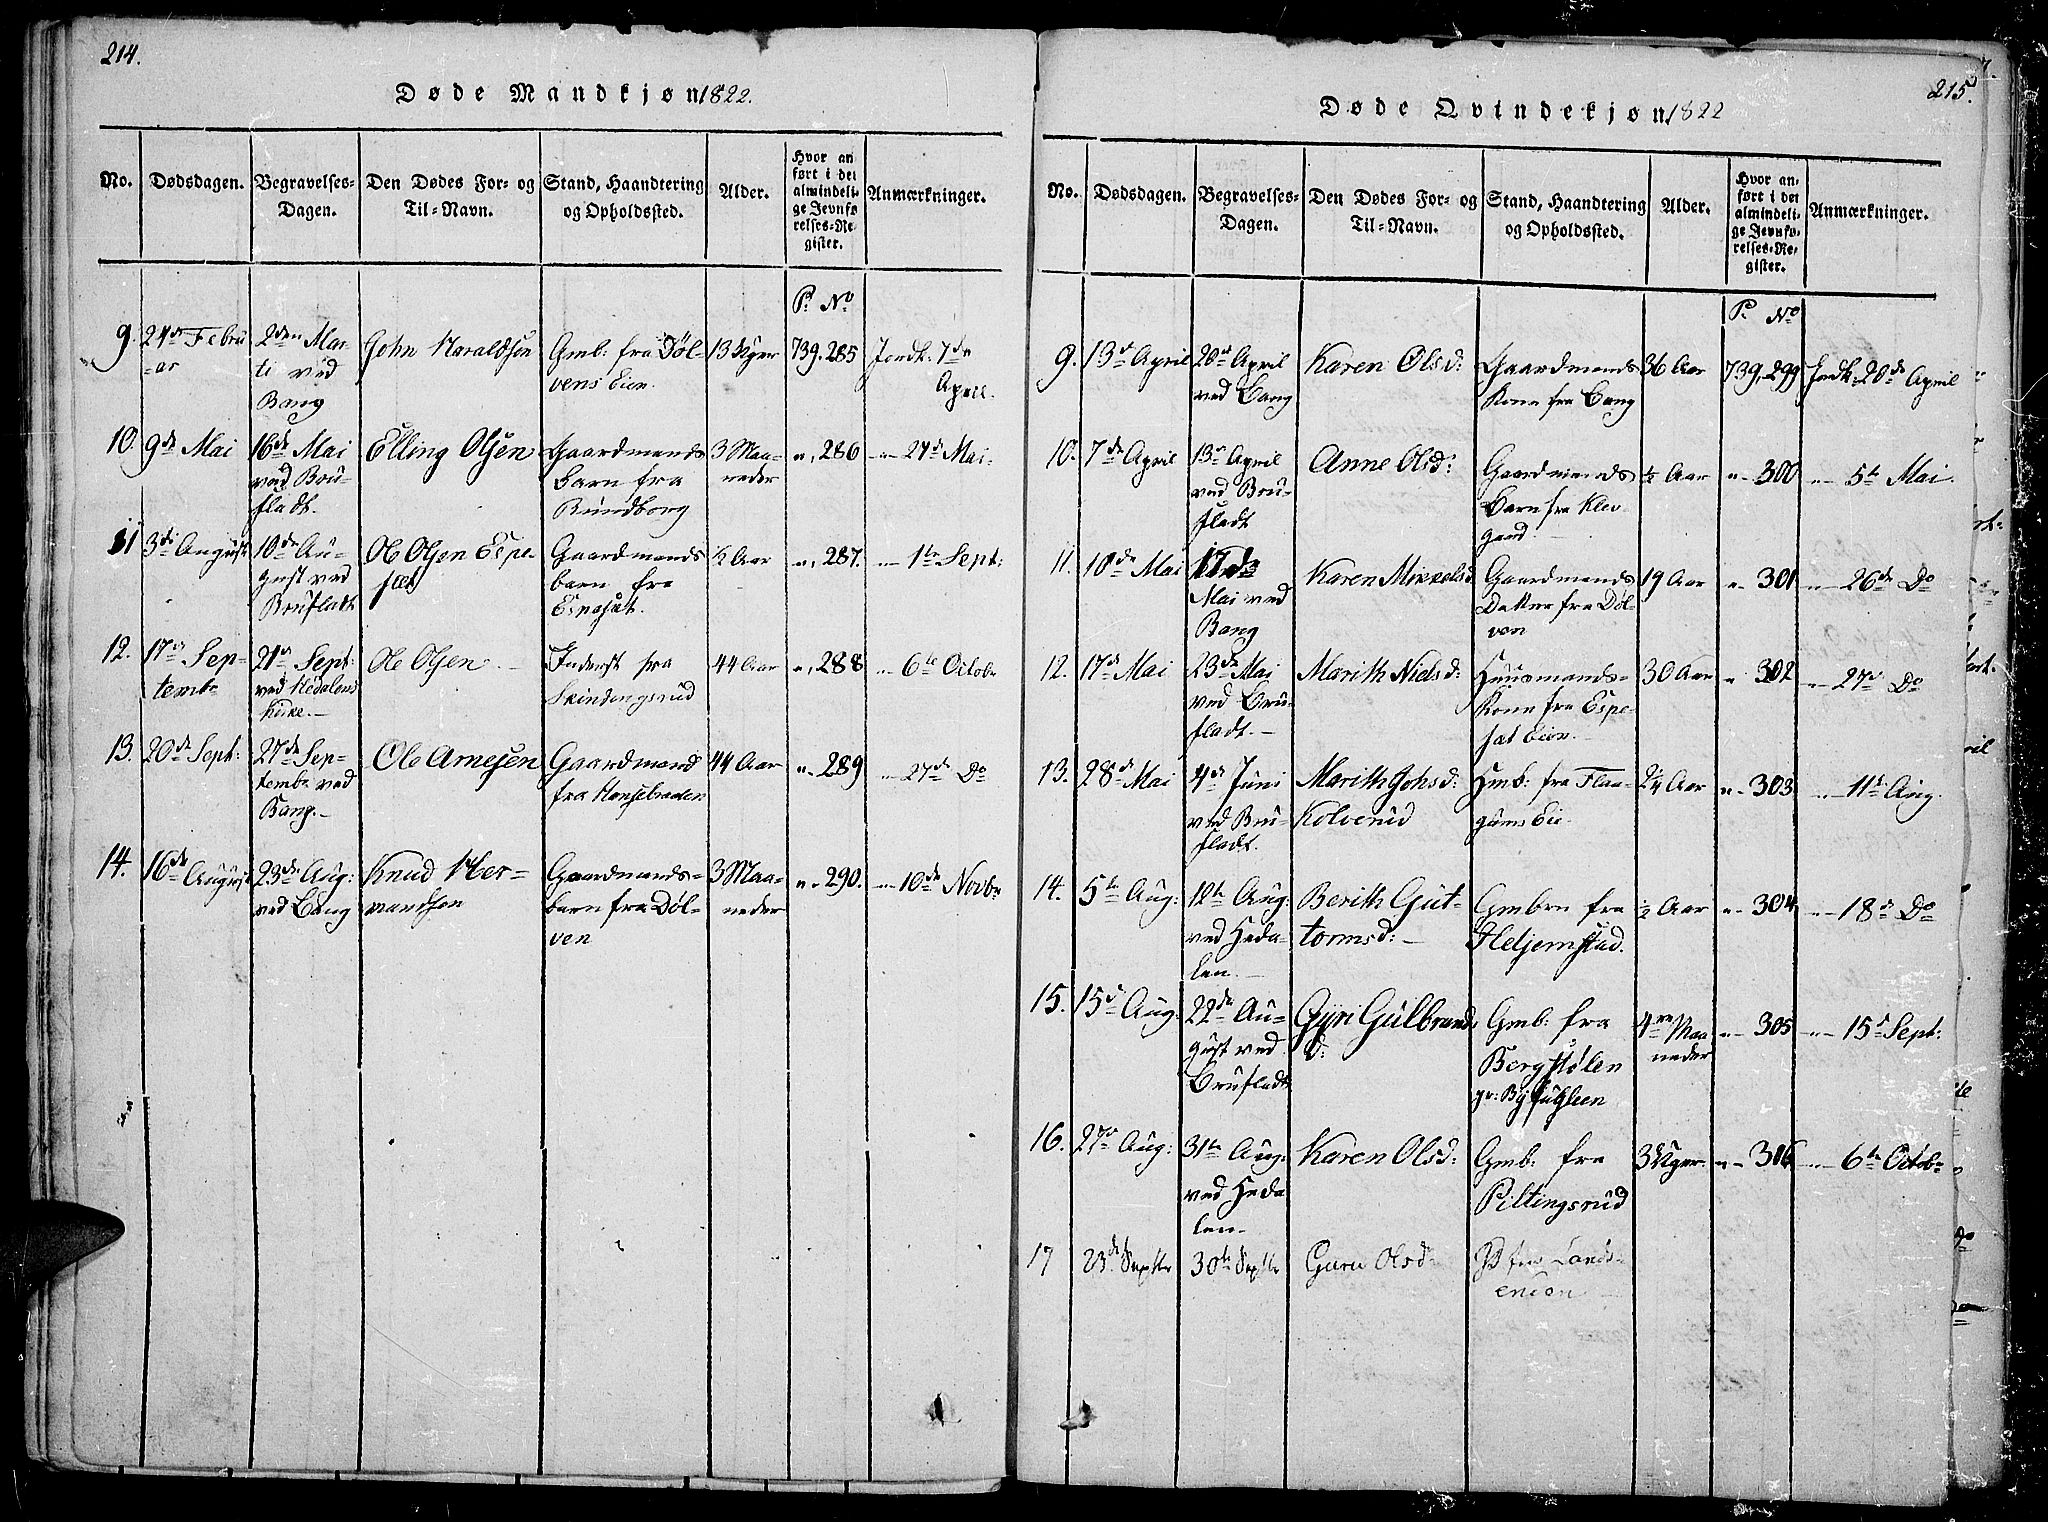 214.
Døde Mandkjøn 1822.
No. Dødsdagen. Begravelses-Dagen. Den Dødes For- og Til-Navn. Stand, Haandtering og Opholdssted. Alder. Hvor anført i det almindelige Jevnførelses-Register. Anmærkninger.
P. No
9. 24de Februar 2den Marti ved Bang John Haraldsen Gmb: fra Dølvens Eier. 13 Uger 739. 285 Jordk: 7de April.
10. 9de Mai 16de Mai ved Brufladt. Elling Olsen Gaardmands barn fra Bundborg 3 Maaneder " - 286 " - 27de Mai.
11 3de August 10de August ved Brufladt Ole Olsen Espeset Gaardmands barn fra Espeset. ½ Aar " - 287. " - 1te Sept:
12. 17de Septembr 21de Sept: ved Hedalens Kirke. Ole Olsen. Inderst fra Skindengsrud 44 Aar " - 288 " - 6te Octobr
13. 20de Sept: 27de Septembr ved Bang. Ole Arnesen Gaardmand fra 44 Aar " - 289 " - 27de Do
14. 16de August 23de Aug: ved Bang Knud Hervandsen Gaardmands-barn fra Dølven 3 Maaneder " - 290. " - 10de Novbr
215.
Døde Qvindekjøn 1822
No. Dødsdagen. Begravelses-Dagen. Den Dødes For- og Til-Navn. Stand, Haandtering og Opholdssted. Alder. Hvor anført i det almindelige Jevnførelses-Register. Anmærkninger.
P. No
9. 13de April 20de April ved Bang Karen Olsd: Gaardmands Kone fra Bang 36 Aar 739. 299 Jordk: 20de April
10. 7de April 13de April ved Brufladt Anne Olsd: Gaardmands Barn fra Klevgard ½ Aar " - 300 " - 5te Mai.
11. 10de Mai 17de Mai ved Bang Karen Mikkelsd. Gaardmands Datter fra Dølven 19 Aar " - 301 " - 26de Do
12. 17de Mai 23de Mai ved Brufladt. Marith Nielsd: Huusmands-Kone fra Espeset Eier. 30 Aar " - 302 " - 27de Do
13. 28de Mai 4de Juni ved Brufladt. Marith Johsd: Kolverud Hmb: fra Flaagums Eie. 2¼ Aar " - 303 " - 11te Aug.
14. 5te Aug: 12te Aug: ved Hedalen. Berith Guttormsd: Gmbrn fra Heljemstad. ½ Aar " - 304 " - 18de Do
15. 15de Aug: 22de August ved Brufladt Gyri Gulbrandsd: Gmb: fra Bergstølen 4re Maaneder " - 305 " - 15de Sept:
16. 27de Aug: 31te Aug: ved Hedalen. Karen Olsd: Gmb: fra Piltingsrud 3 Uger. " - 306 " - 6te Octobr
17 23de Septbr 30te Septbr Guru Olsd: